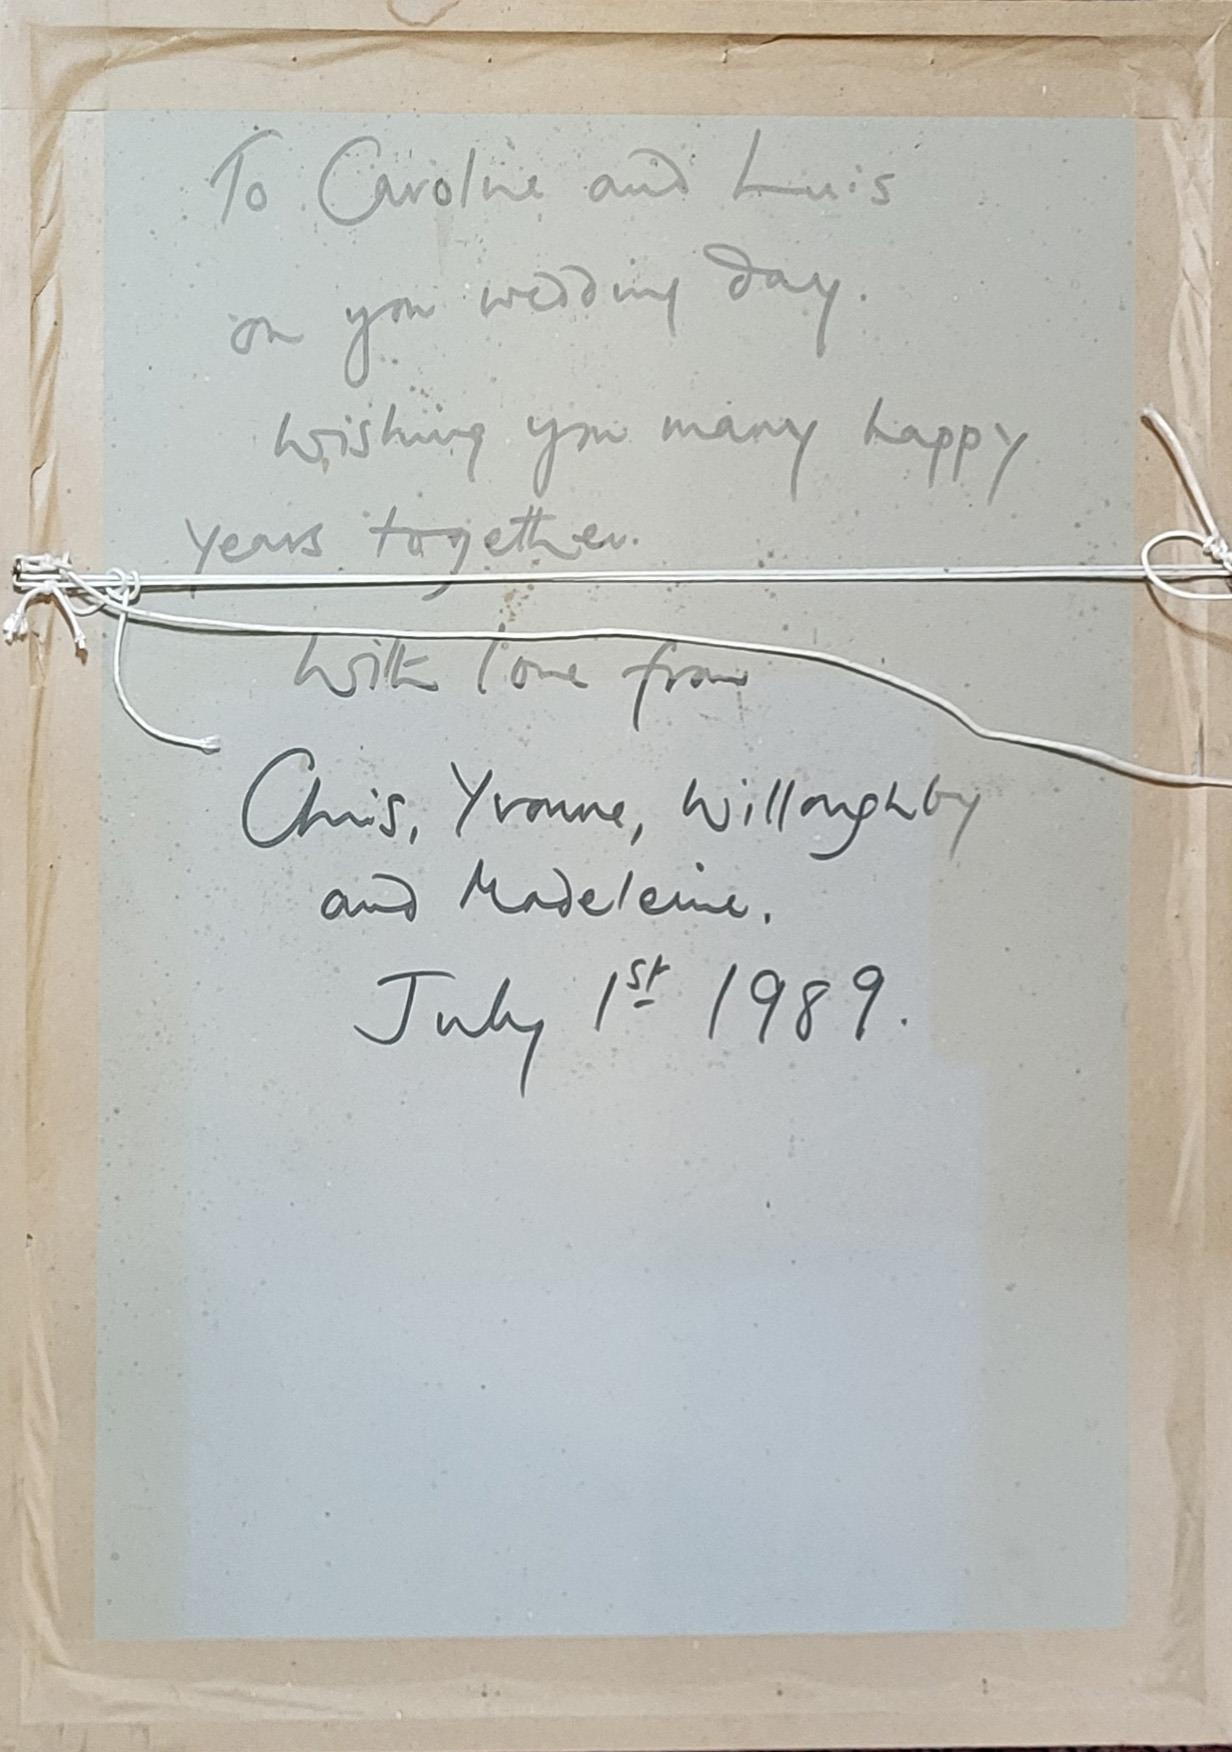 To Caroline and Luis
on you wedding day.
Wishing you many happy
years together.
With love from
Chris, Yvonne, Willoughby
and Madeleine.
July 1st 1989.